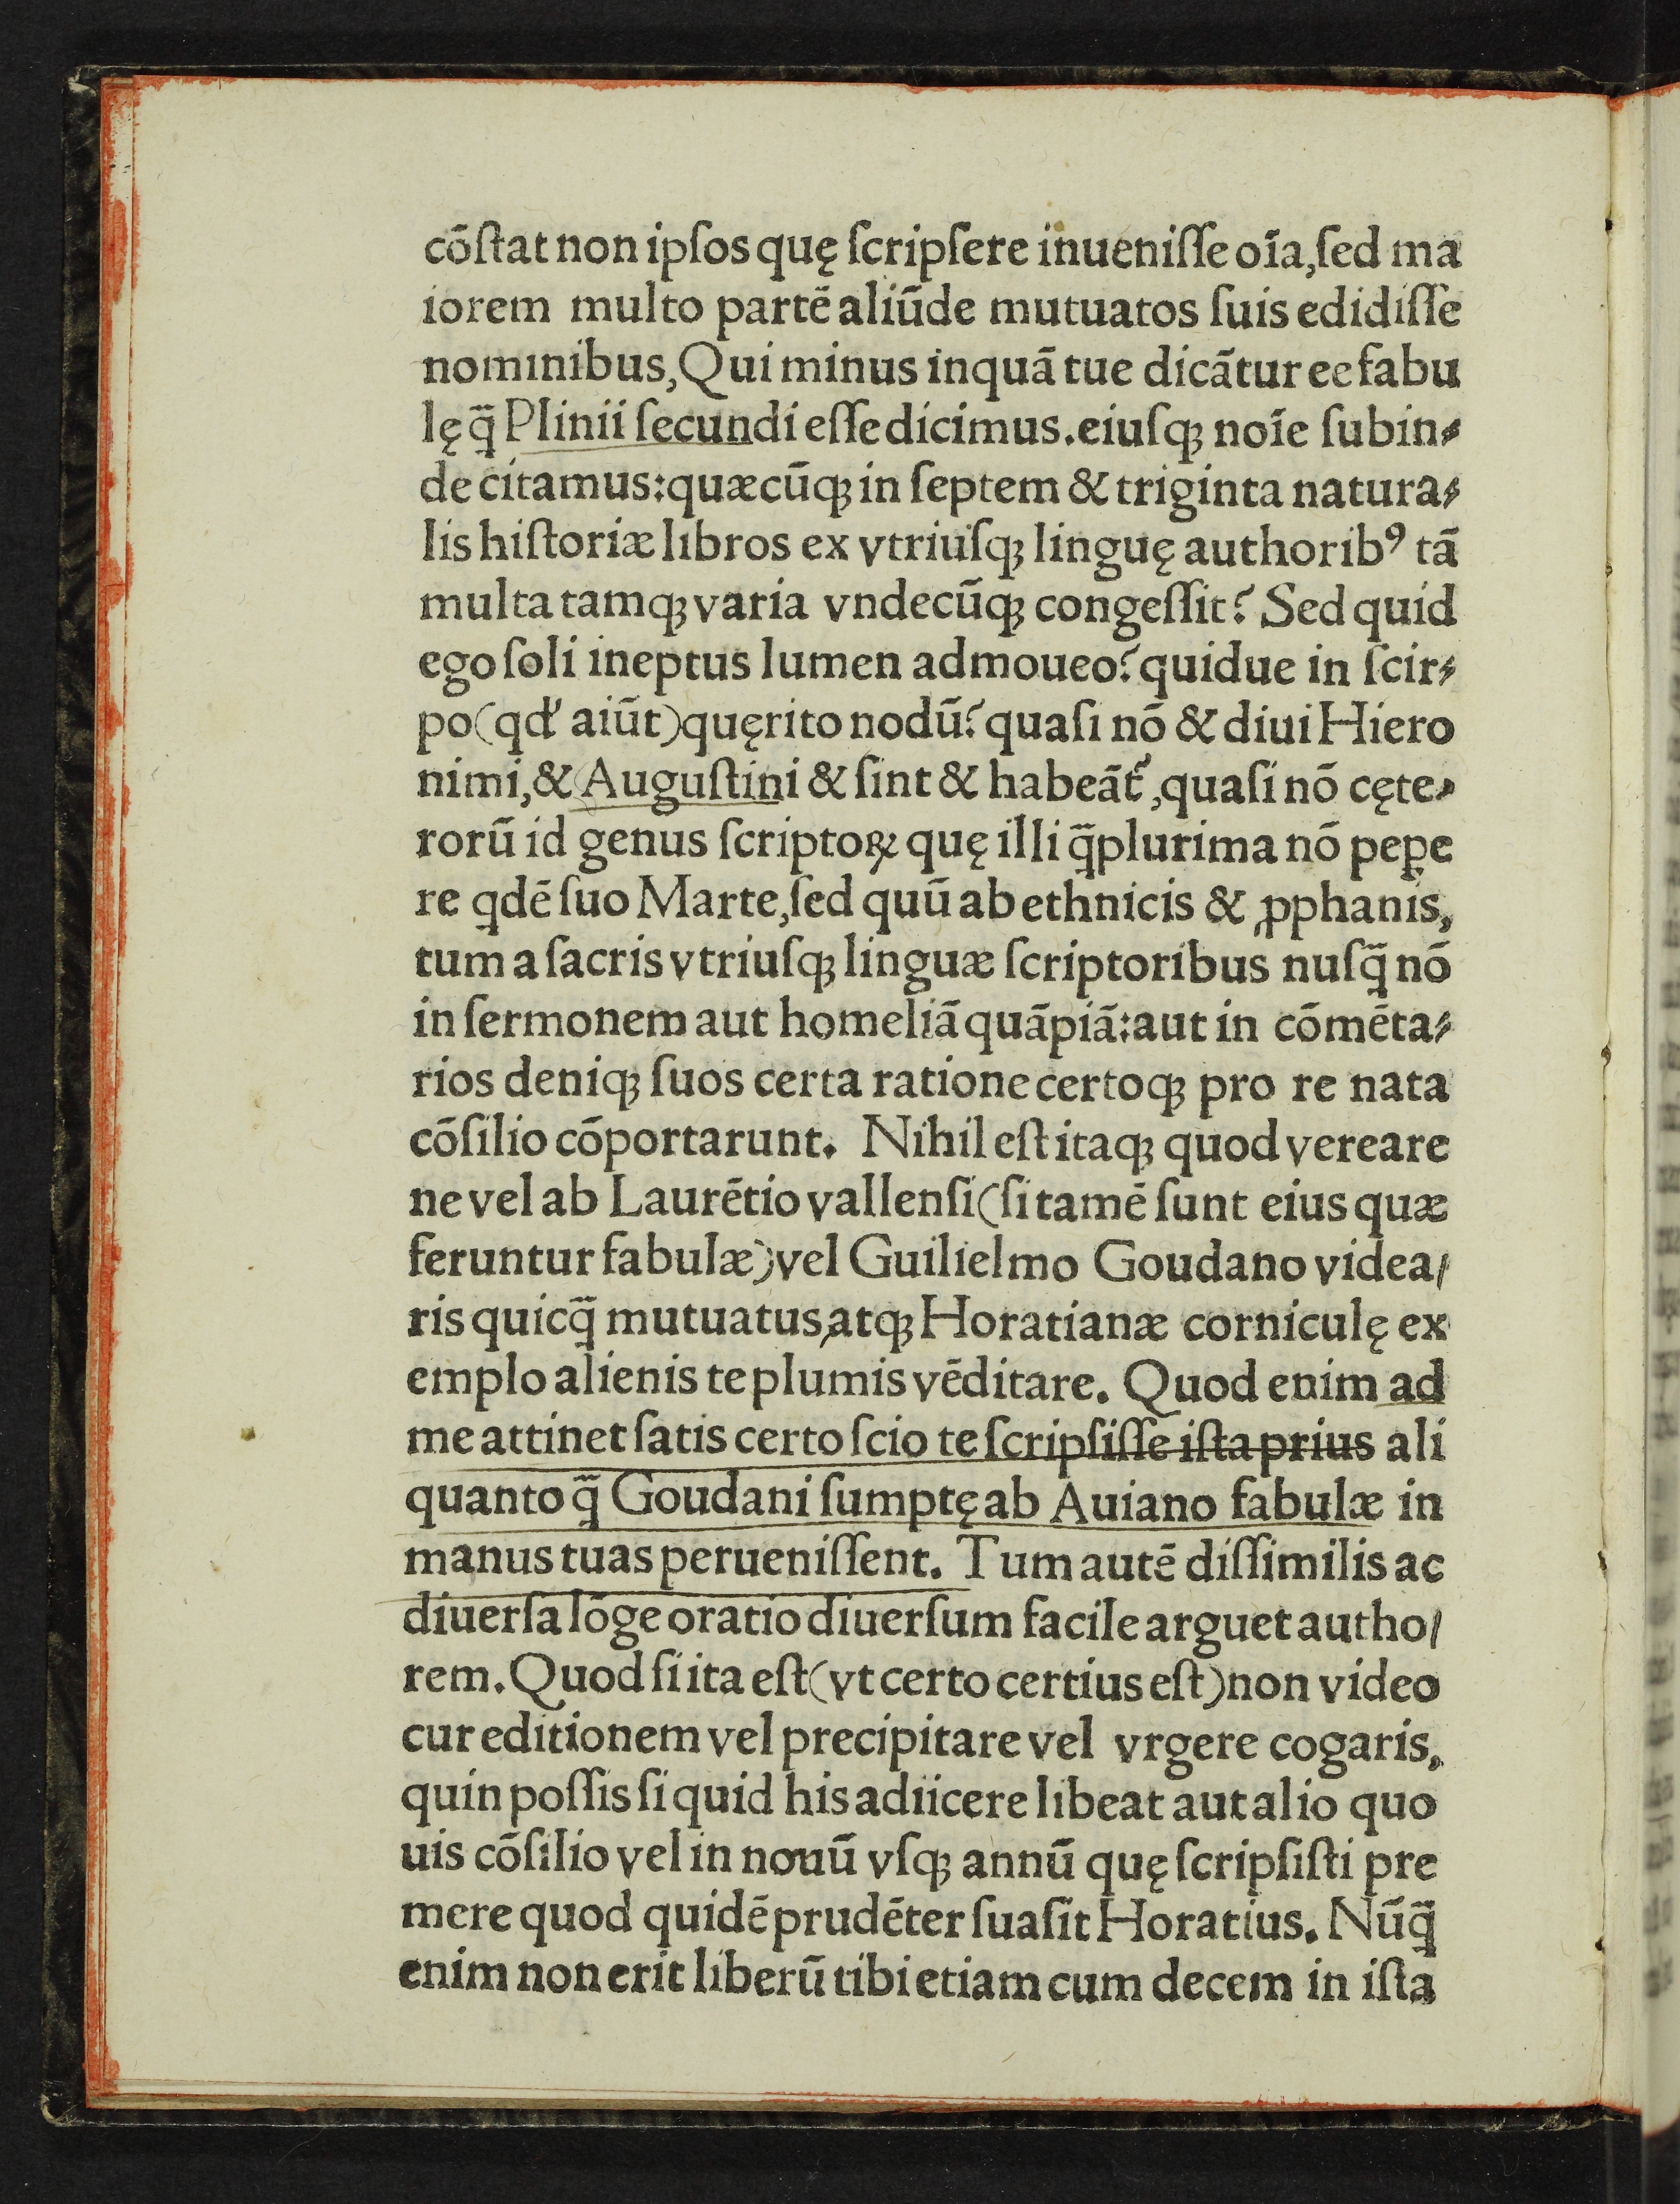 cōſtat non ipſos quę ſcripſere inueniſſe oīa,ſed ma
iorem multo partē aliūde mutuatos ſuis edidiſſe
nominibus,Qui minus inquā tue dicātur ee fabu
lę q̃ Plinii ſecundi eſſe dicimus.eiuſqꝫ noīe ſubin⸗
de citamus:quæcūqꝫ in ſeptem & triginta natura⸗
lis hiſtoriæ libros ex vtriuſqꝫ linguę authoribꝰ tā
multa tamqꝫ varia vndecūqꝫ congeſſit? Sed quid
ego ſoli ineptus lumen admoueo?quidue in ſcir⸗
po(qd' aiūt)quęrito nodū?quaſi nō & diui Hiero
nimi,& Auguſtini & ſint & habeāt᷑,quaſi nō cęte⸗
rorū id genus ſcriptoꝝ quę illi q̃plurima nō peꝑe
re qdē ſuo Marte,ſed quū ab ethnicis & ꝓphanis,
tum a ſacris vtriuſqꝫ linguæ ſcriptoribus nuſq̃ nō
in ſermonem aut homeliā quāpiā:aut in cōmēta⸗
rios deniqꝫ ſuos certa ratione certoqꝫ pro re nata
cōſilio cōportarunt. Nihil eſt itaqꝫ quod vereare
ne vel ab Laurētio vallenſi(ſi tamē ſunt eius quæ
feruntur fabulæ)vel Guilielmo Goudano videa/
ris quicq̃ mutuatus,atqꝫ Horatianæ corniculę ex
emplo alienis te plumis vēditare. Quod enim ad
me attinet ſatis certo ſcio te ſcripſiſſe iſta prius ali
quanto q̃ Goudani ſumptę ab Auiano fabulæ in
manus tuas perueniſſent. Tum autē diſſimilis ac
diuerſa lōge oratio diuerſum facile arguet autho/
rem. Quod ſi ita eſt(vt certo certius eſt)non video
cur editionem vel precipitare vel vrgere cogaris,
quin poſſis ſi quid his adiicere libeat aut alio quo
uis cōſilio vel in nouū vſqꝫ annū quę ſcripſiſti pre
mere quod quidē prudēter ſuaſit Horatius. Nūq̃
enim non erit liberū tibi etiam cum decem in iſta